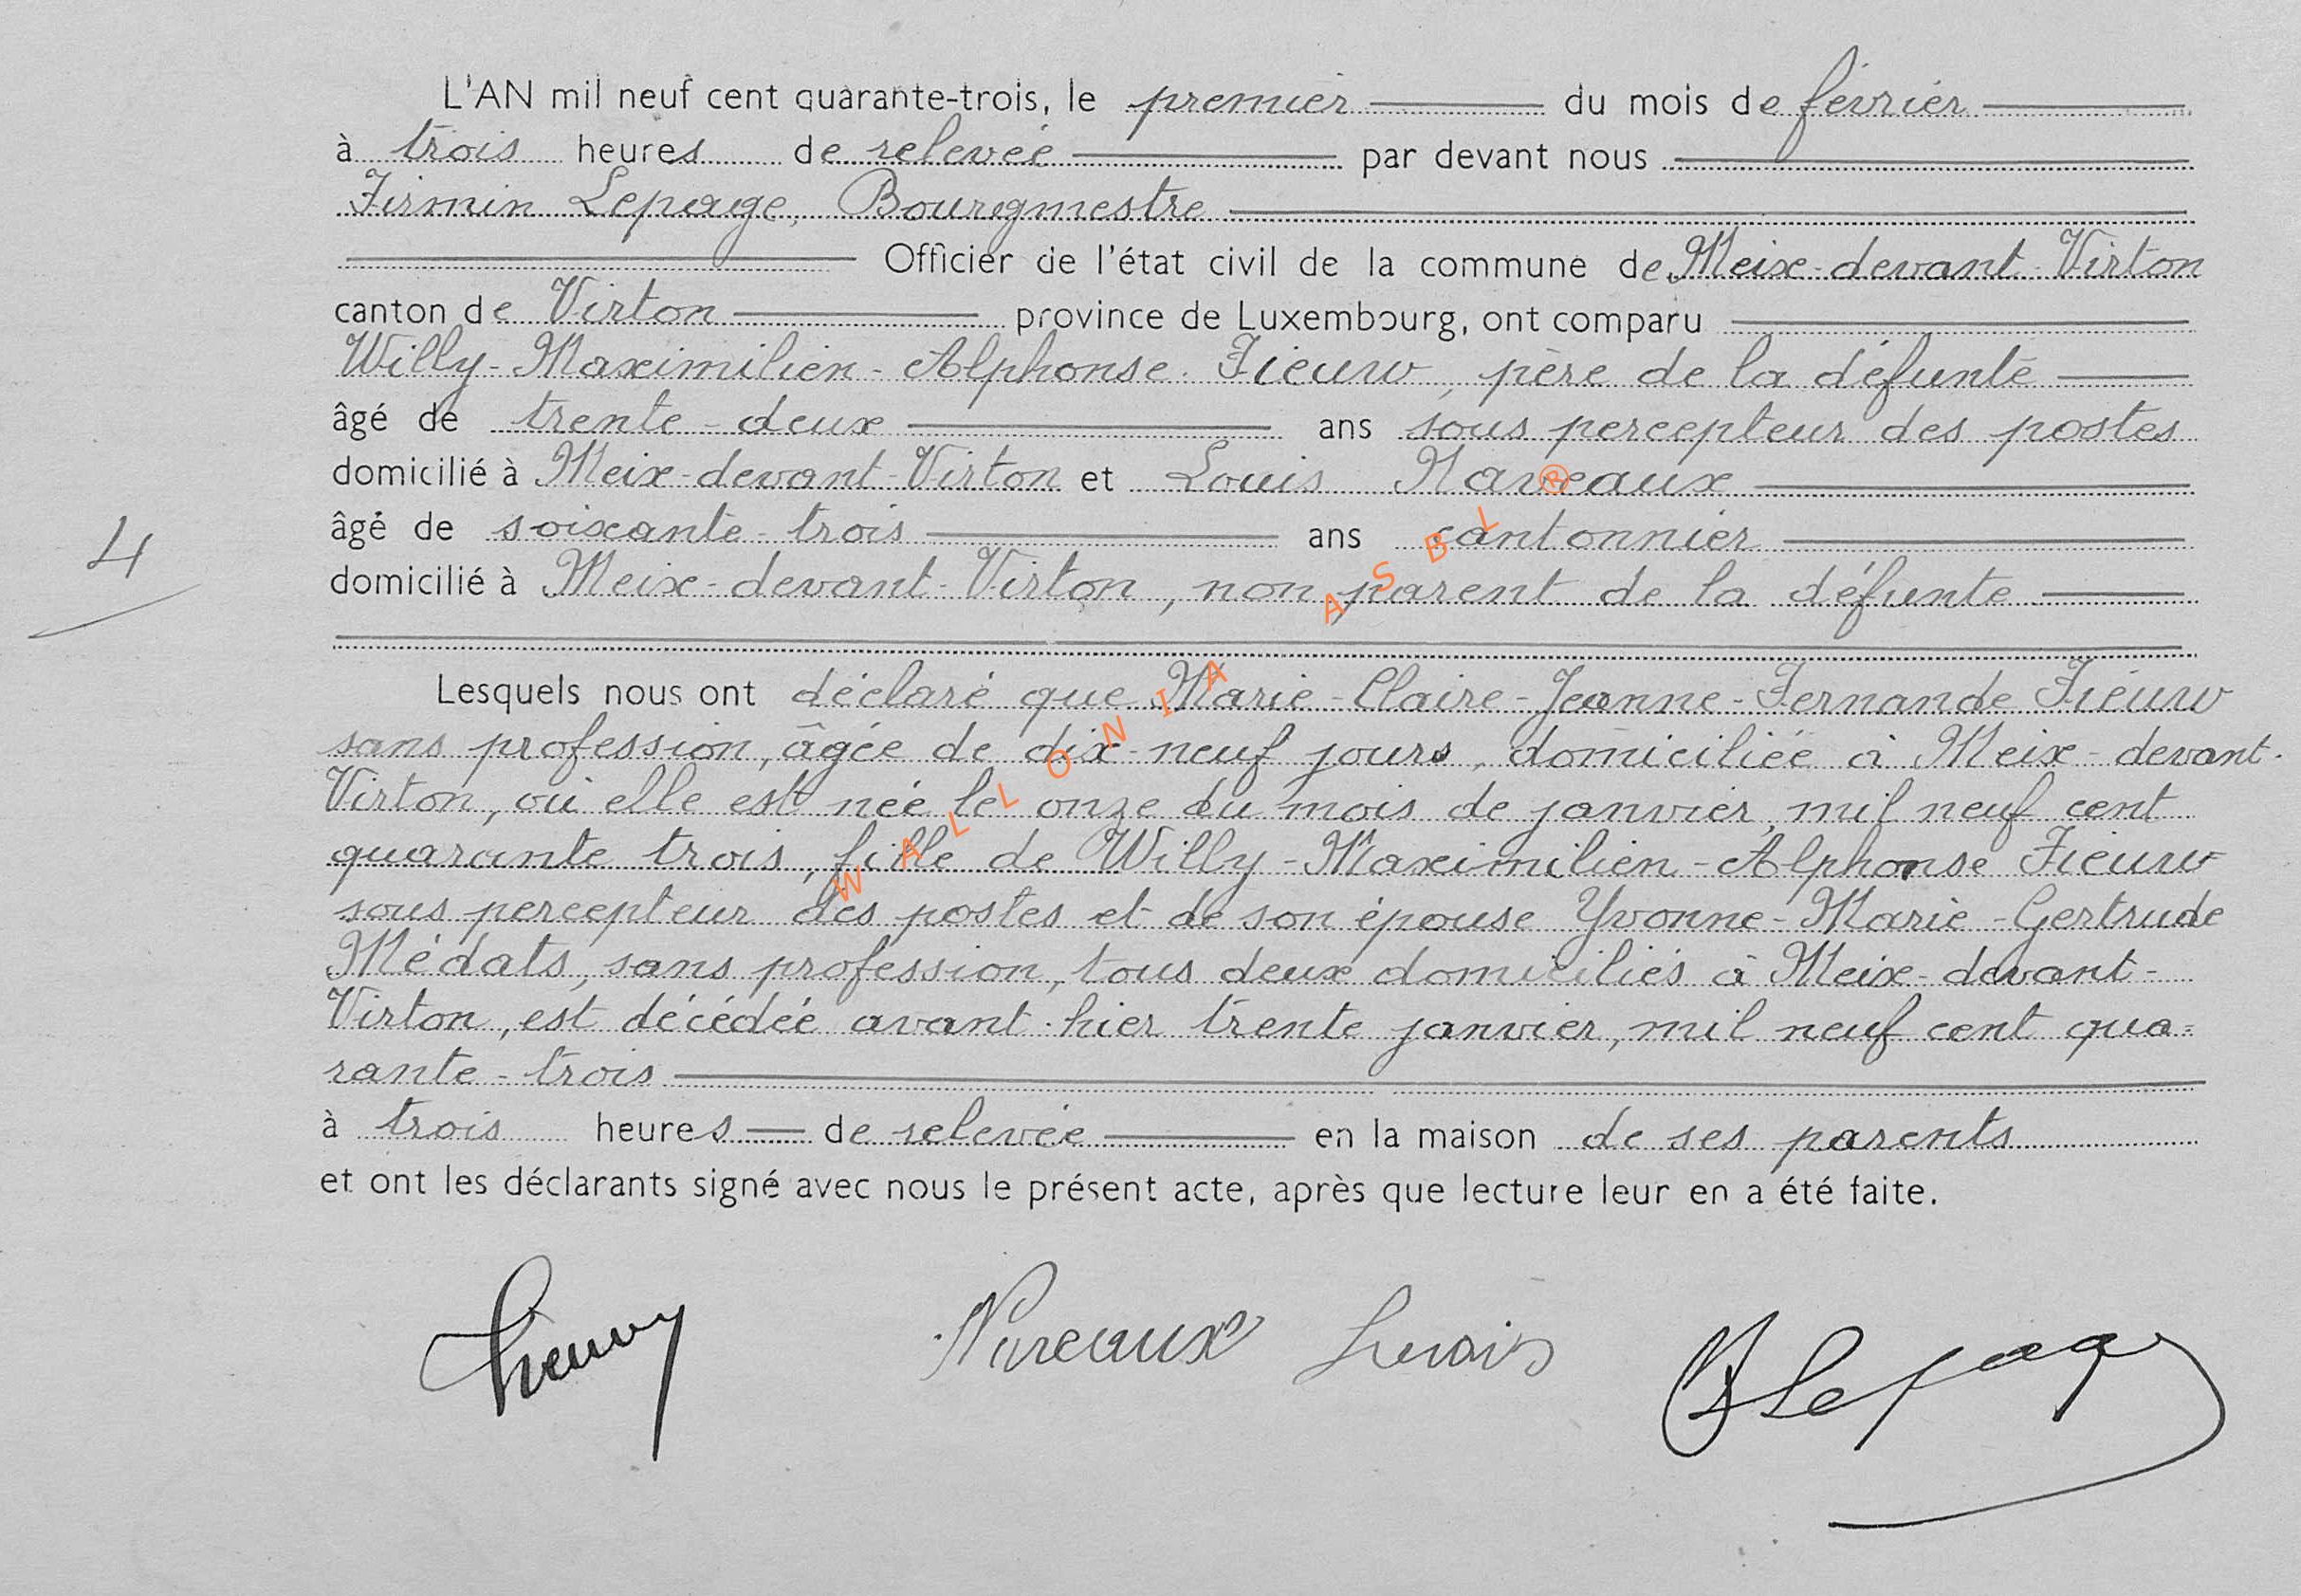 L'AN mil neuf cent quarante-trois, le premier du mois de février
à trois heures de relevée par devant nous
Firmin Lepage, Bourgmestre
Officier de l'état civil de la commune de Meix-devant-Virton
canton de Virton province de Luxembourg, ont comparu
Willy-Maximilien-Alphonse Fieuw, père de la défunte
âgé de trente-deux ans sous percepteur des postes
domicilié à Meix-devant-Virton et Louis Naveaux
âgé de soixante-trois ans cantonnier
4
domicilié à Meix-devant-Virton, non parent de la défunte
Lesquels nous ont déclaré que Marie-Claire-Jeanne-Fernande Fieuw
sans profession, âgée de dix-neuf jours, domiciliée à Meix-devant-
Virton, où elle est née le onze du mois de janvier, mil neuf cent
quarante trois, fille de Willy-Maximilien-Alphonse Fieuw
sous percepteur des postes et de son épouse Yvonne-Marie-Gertrude
Médats, sans profession, tous deux domiciliés à Meix-devant-
Virton, est décédée avant-hier trente janvier, mil neuf cent qua=
rante-trois
à trois heures de relevée en la maison de ses parents
et ont les déclarants signé avec nous le présent acte, après que lecture leur en a été faite.
WALLONIA ASBL ®
Louis Lepage